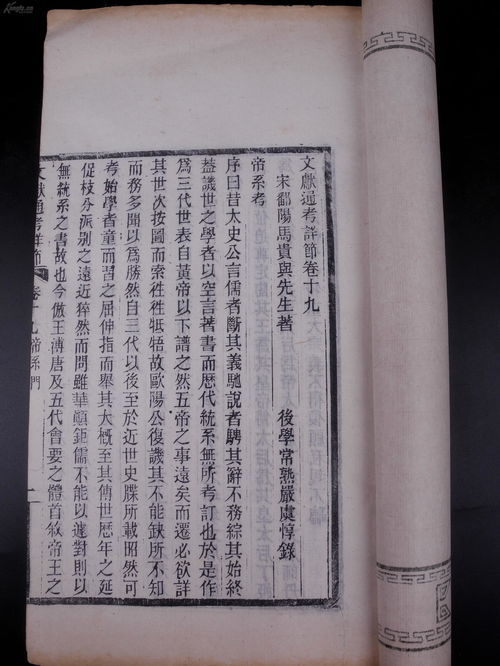 文獻通考詳節卷十九
宋鄱陽馬貴與先生著 後學常熟嚴虞惇錄
帝系考
序曰昔太史公言儒者斷其義馳說者騁其辭不務綜其始終
蓋譏世之學者以空言著書而歷代統系無所考訂也於是作
爲三代世表自黃帝以下譜之然五帝之事遠矣而遷必欲詳
其世次按圖而索徃徃牴牾故歐陽公復譏其不能缺所不知
而務多聞以爲勝然自三代以後至於近世史牒所載昭然可
考始學者童而習之屈伸指而舉其大概至其傳世歷年之延
促枝分派別之遠近猝然而問雖華顛鉅儒不能以遽對則以
無統系之書故也今倣王溥唐及五代會要之體首敘帝王之
文獻通考詳節 卷十九帝系門 一